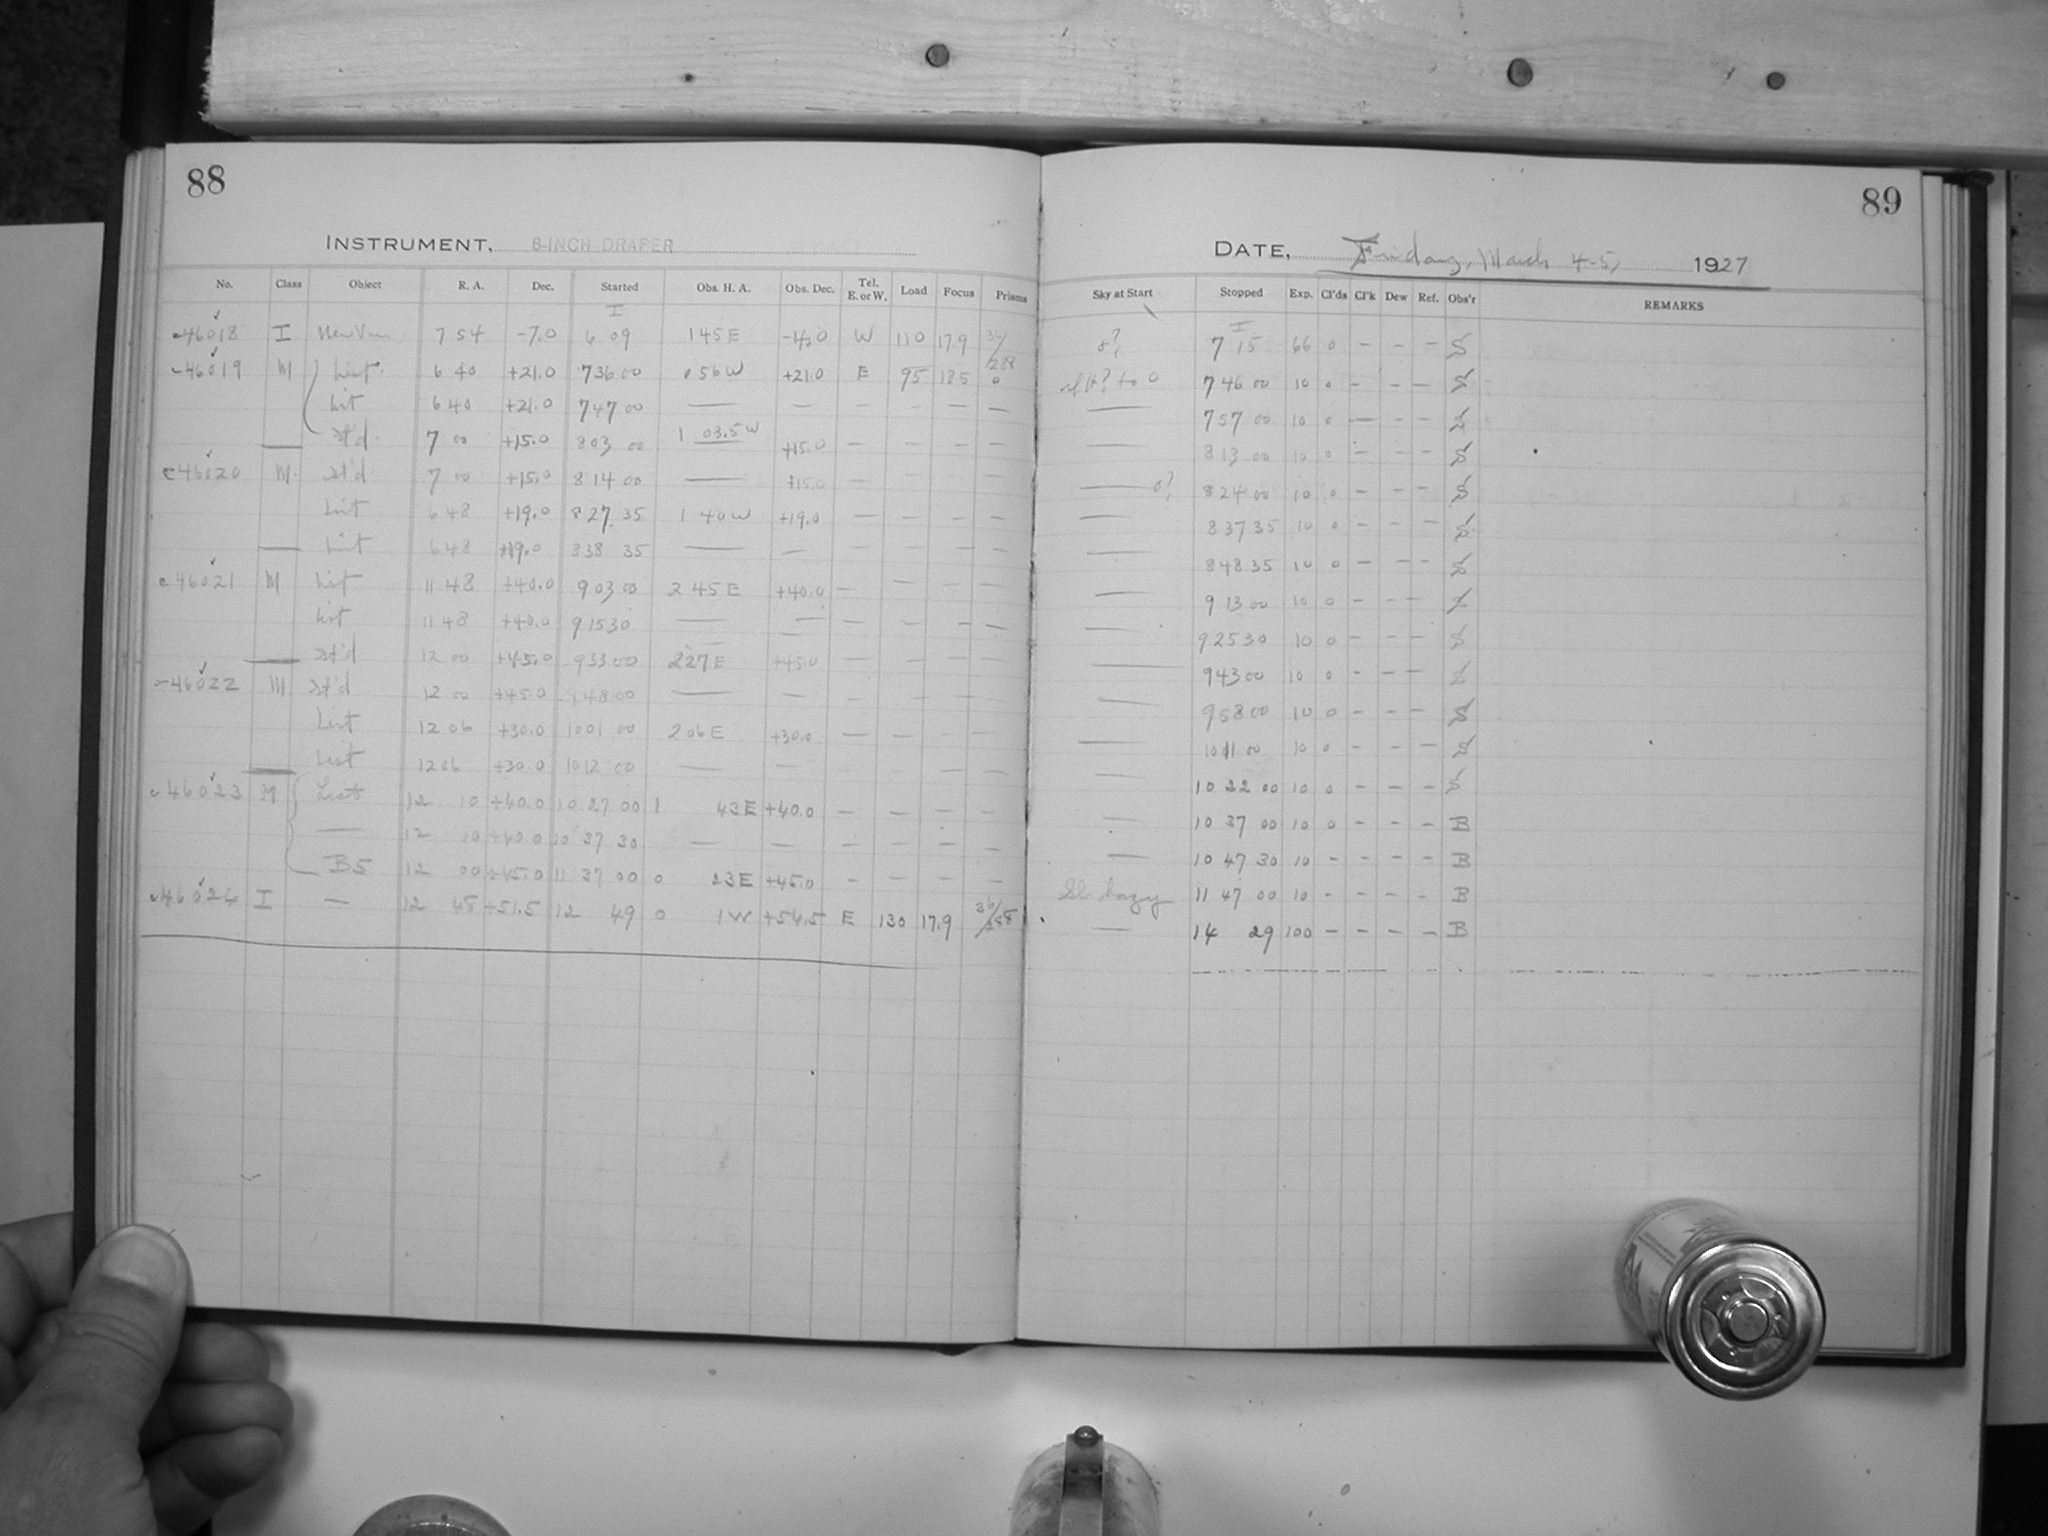 88
89
INSTRUMENT, 8-INCH DRAPER
DATE, Friday, March 4-5, 1927
No. Class Object R. A. Dec. Started Obs. H. A. Obs. Dec. Tel. E. or W. Load Focus Prisms Sky at Start Stopped Exp. Cl'ds Cl'k Dew Ref. Obs'r REMARKS
I I
46018 I New Var 7 54 -7.0 6 09 1 45 E W 110 17.9 8? 7 15 66 0 - - - S
46019 M List 6 40 +21.0 7 36 00 0 56 W +21.0 E 95 18.5 0 7 46 00 10 0 - - - S
List 6 40 +21.0 7 47 00 — — — — — — — 7 57 00 10 0 — - - S
St'd 7 00 +15.0 8 03 00 1 03.5 W +15.0 — — — — — 8 13 00 10 0 - - - S
46020 M St'd 7 00 +15.0 8 14 00 — +15.0 — — — — — 0? 8 24 00 10 0 - - - S
List 6 48 +19.0 8 27 35 1 40 W +19.0 — — — — — 8 37 35 10 0 - - - S
List 6 48 +19.0 8 38 35 — — — — — — — 8 48 35 10 0 - - - S
46021 M List 11 48 +40.0 9 03 00 2 45 E +40.0 — — — — — 9 13 00 10 0 - - - S
List 11 48 +40.0 9 15 30 — — — — — — — 9 25 30 10 0 - - - S
St'd 12 00 +45.0 9 33 00 2 27 E +45.0 — — — — — 9 43 00 10 0 - - - S
46022 M St'd 12 00 +45.0 9 48 00 — — — — — — — 9 58 00 10 0 - - - S
List 12 06 +30.0 10 01 00 2 06 E +30.0 — — — — — 10 11 00 10 0 - - - S
List 12 06 +30.0 10 12 00 — — — — — — — 10 22 00 10 0 - - - S
46023 M List 12 10 +40.0 10 27 00 1 43 E +40.0 — — — — — 10 37 00 10 0 - - - B
— 12 10 +40.0 10 37 30 — — — — — — — 10 47 30 10 - - - - B
B5 12 00 +45.0 11 37 00 0 23 E +45.0 — — — — Sl hazy 11 47 00 10 - - - - B
46024 I — 12 48 +51.5 12 49 0 1 W E 130 17.9 — 14 29 100 - - - - B